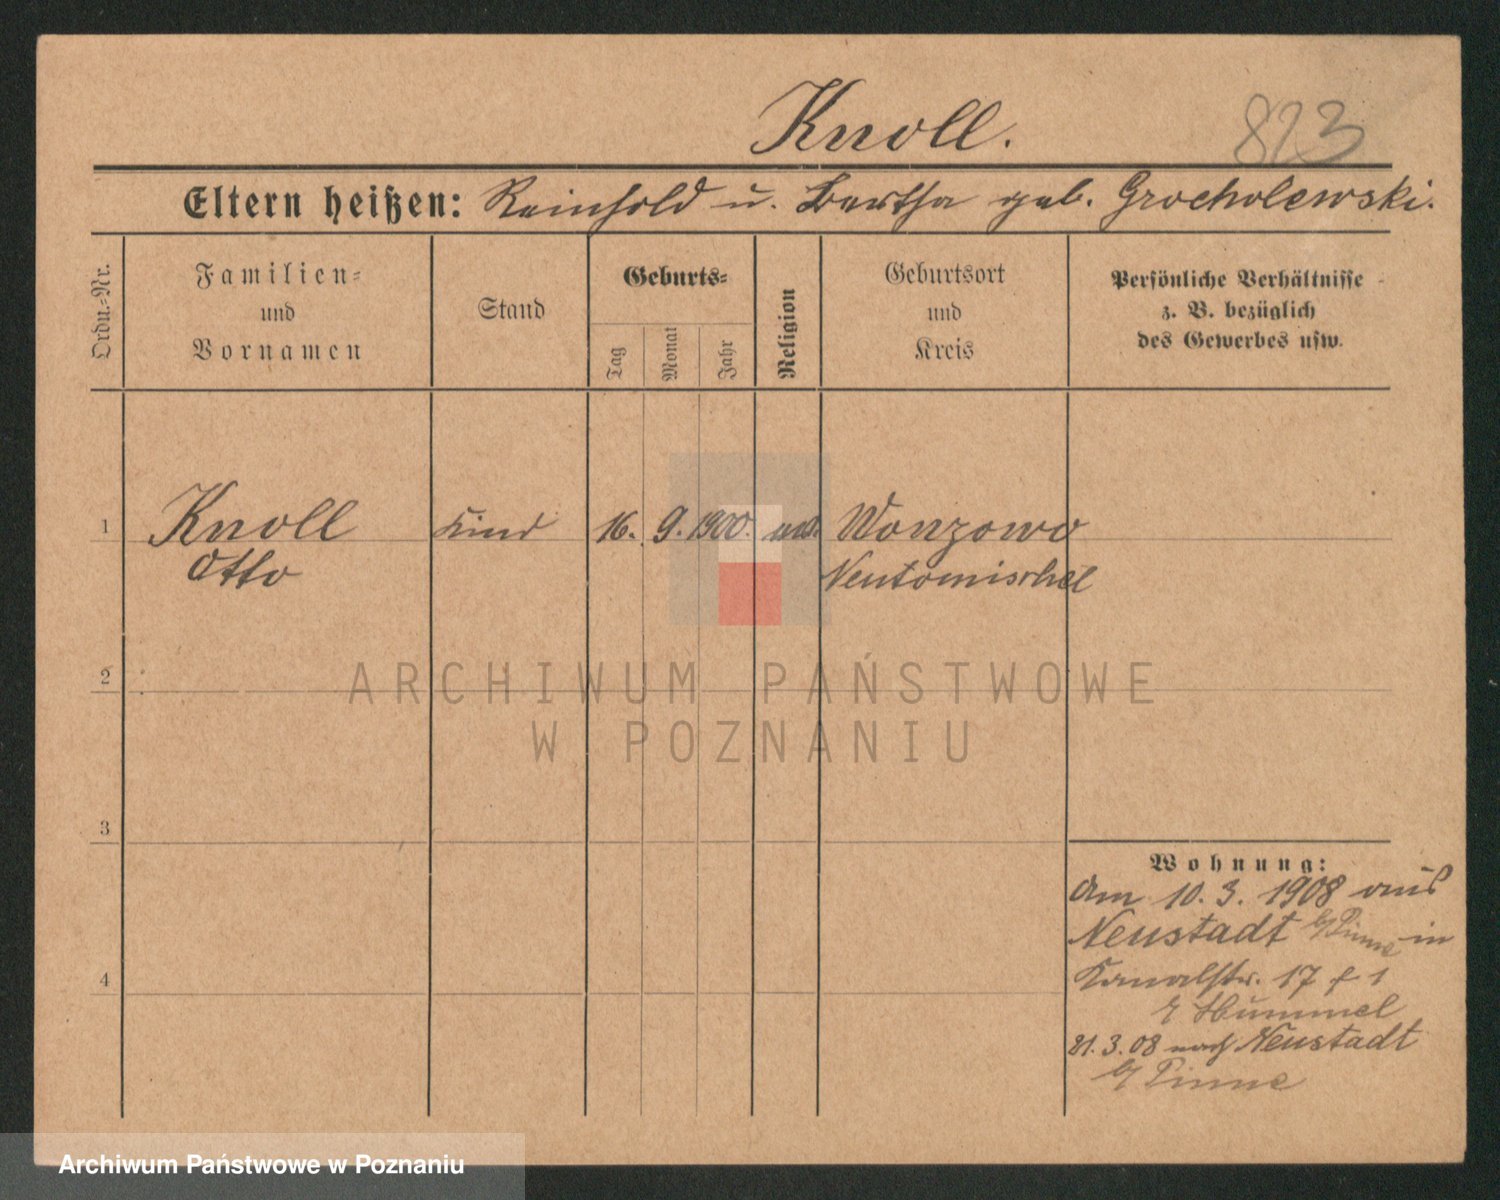 Knoll. 823
Eltern heißen: Reinhold u. Bertha geb. Grocholewski.
Ordn.-Nr.
Familien-
und
Vornamen
Stand
Geburts-
Tag
Monat
Jahr
Religion
Geburtsort
und
Kreis
Persönliche Verhältnisse
z. B. bezüglich
des Gewerbes usw.
1 Knoll Kind 16. 9. 1900. Wonzowo
Otto Neutomischel
2
ARCHIWUM PAŃSTWOWE
W POZNANIU
3
Wohnung:
Am 10. 3. 1908 aus
Neustadt b/Pinne in
4
Kanalstr. 17 f 1
Hummel
31. 3. 08 nach Neustadt
b/ Pinne
Archiwum Państwowe w Poznaniu